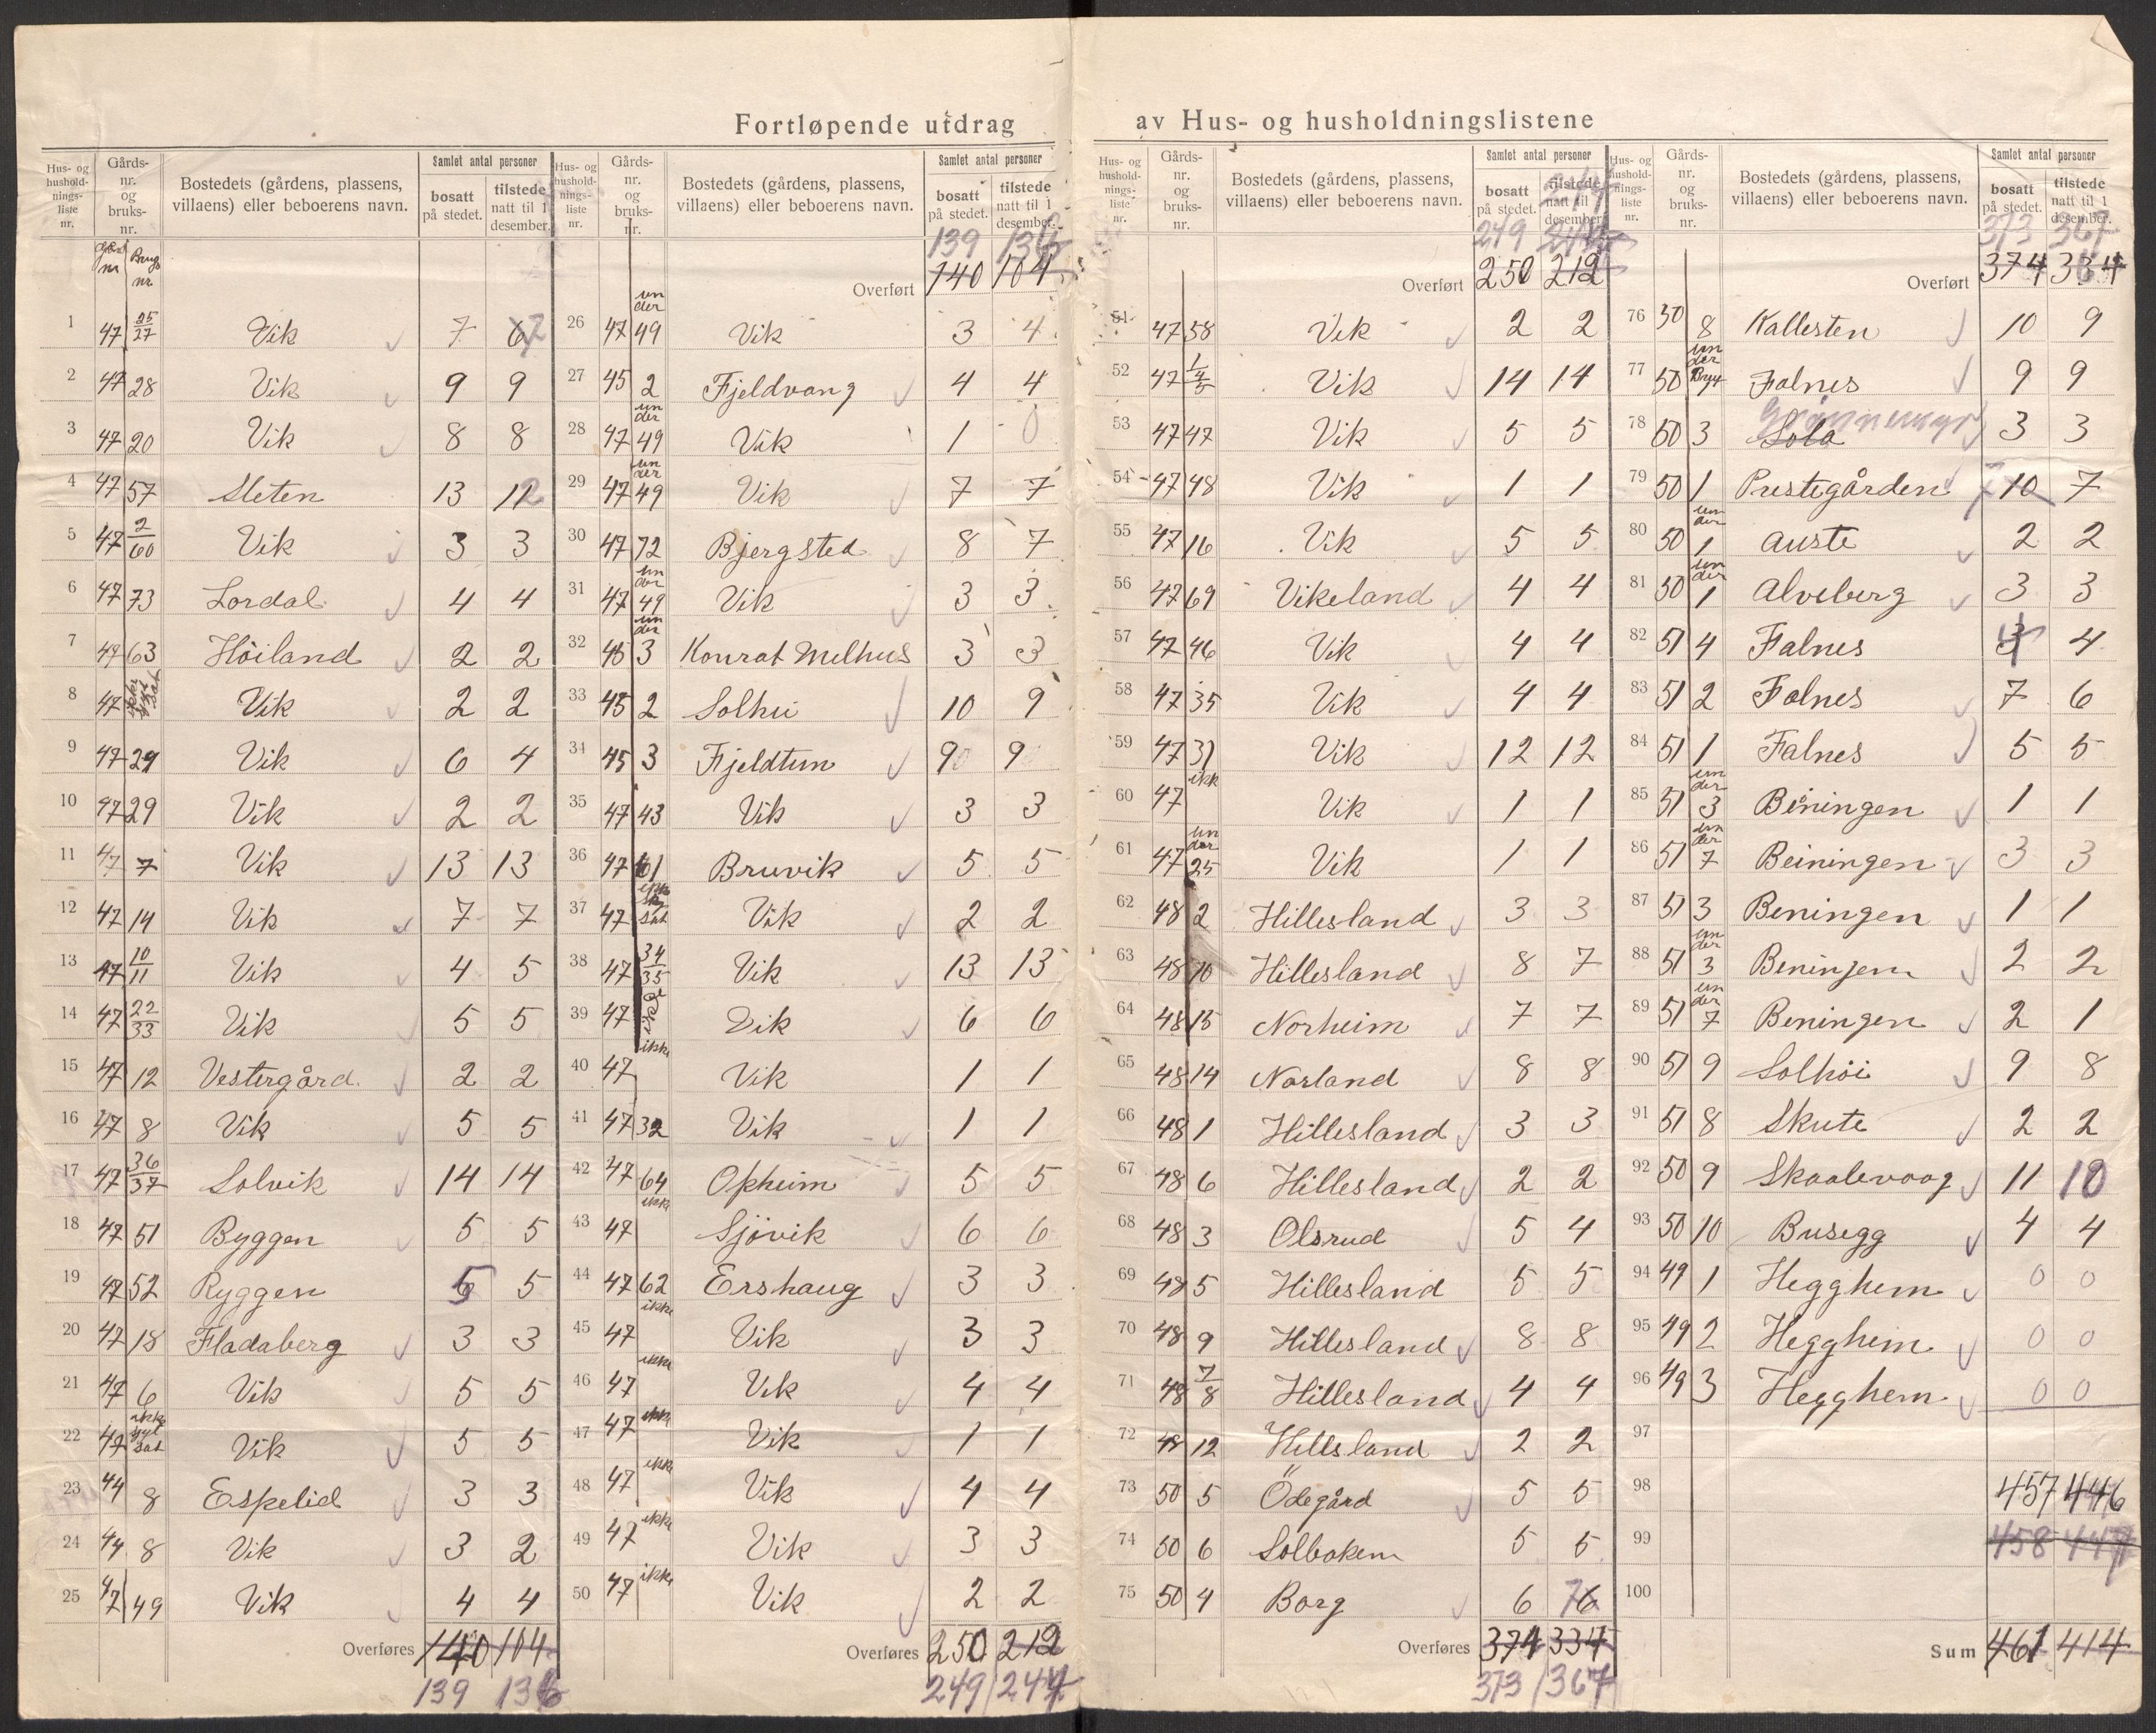 Fortløpende utdrag av Hus- og husholdningslistene
Hus- og hushold-nings-liste nr. | Gårds-nr. og bruks-nr. | Bostedets (gårdens, plassens, villaens) eller beboerens navn. | Samlet antal personer | bosatt på stedet. | tilstede natt til 1 desember.
gårds nr | Brugs nr.
1 47 25/27 Vik 7
2 47 28 Vik 9 9
3 47 20 Vik 8 8
4 47 57 Sleten 13 12
5 47 2/60 Vik 3 3
6 47 73 Lordal 4 4
7 47 63 Höiland 2 2
8 47 ikke Vik 2 2
9 47 29 Vik 6 4
10 47 29 Vik 2 2
11 47 7 Vik 13 13
12 47 14 Vik 7 7
13 47 10/11 Vik 4 5
14 47 22/33 Vik 5 5
15 47 12 Vestergård 2 2
16 47 8 Vik 5 5
17 47 36/37 Solvik 14 14
18 47 51 Byggen 5 5
19 47 52 Ryggen 5 5
20 47 18 Fladaberg 3 3
21 47 6 Vik 5 5
22 47 ikke Vik 5 5
23 44 8 Espelid 3 3
24 44 8 Vik 3 2
25 47 49 Vik 4 4
Overføres 140 104
139 136
Hus- og hushold-nings-liste nr. | Gårds-nr. og bruks-nr. | Bostedets (gårdens, plassens, villaens) eller beboerens navn. | Samlet antal personer | bosatt på stedet. | tilstede natt til 1 desember.
139 136
Overført 140 104
26 47 under 49 Vik 3 4
27 45 2 Fjeldvang 4 4
28 47 under 49 Vik 1 0
29 47 under 49 Vik 7 7
30 47 72 Bjergsted 8 7
31 47 under 49 Vik 3 3
32 45 under 3 Konrat Melhus 3 3
33 45 2 Solhei 10 9
34 45 3 Fjeldtun 9 9
35 47 43 Vik 3 3
36 47 61 Bruvik 5 5
37 47 ikke Vik 2 2
38 47 34/35 Vik 13 13
39 47 ikke Vik 6 6
40 47 ikke Vik 1 1
41 47 32 Vik 1 1
42 47 64 Opheim 5 5
43 47 ikke Sjövik 6 6
44 47 62 Ershaug 3 3
45 47 ikke Vik 3 3
46 47 ikke Vik 4 4
47 47 ikke Vik 1 1
48 47 ikke Vik 4 4
49 47 ikke Vik 3 3
50 47 ikke Vik 2 2
Overføres 250 212
249 244
Hus- og hushold-nings-liste nr. | Gårds-nr. og bruks-nr. | Bostedets (gårdens, plassens, villaens) eller beboerens navn. | Samlet antal personer | bosatt på stedet. | tilstede natt til 1 desember.
249
Overført 250 212
51 47 58 Vik 2 2
52 47 1/4/5 Vik 14 14
53 47 47 Vik 5 5
54 47 48 Vik 1 1
55 47 16 Vik 5 5
56 47 69 Vikeland 4 4
57 47 46 Vik 4 4
58 47 35 Vik 4 4
59 47 31 Vik 12 12
60 47 ikk Vik 1 1
61 47 under 25 Vik 1 1
62 48 2 Hillesland 3 3
63 48 10 Hillesland 8 7
64 48 15 Norheim 7 7
65 48 14 Norland 8 8
66 48 1 Hillesland 3 3
67 48 6 Hillesland 2 2
68 48 3 Olsrud 5 4
69 48 5 Hillesland 5 5
70 48 9 Hillesland 8 8
71 48 7/8 Hillesland 4 4
72 48 12 Hillsland 2 2
73 50 5 Ödegård 5 5
74 50 6 Solbaken 5 5
75 50 4 Borg 6 6
Overføres 374 334
373 367
Hus- og hushold-nings-liste nr. | Gårds-nr. og bruks-nr. | Bostedets (gårdens, plassens, villaens) eller beboerens navn. | Samlet antal personer | bosatt på stedet. | tilstede natt til 1 desember.
373 367
Overført 374 334
76 50 8 Kallesten 10 9
77 50 under Falnes 9 9
78 50 3 Sola 3 3
79 50 1 Prestegården 10 7
80 50 under 1 Auste 2 2
81 50 under 1 Alveberg 3 3
82 51 4 Falnes 4 4
83 51 2 Falnes 7 6
84 51 1 Falnes 5 5
85 51 under 3 Beningen 1 1
86 51 under 7 Beiningen 3 3
87 51 3 Beningen 1 1
88 51 under 3 Beningen 2 2
89 51 under 7 Beningen 2 1
90 51 9 Solhöi 9 8
91 51 8 Skute 2 2
92 50 9 Skaalevaag 11 10
93 50 10 Busegg 4 4
94 49 1 Hegghem 0 0
95 49 2 Hegghem 0 0
96 49 3 Hegghem 0 0
97
98 457 446
99 458 447
100
Sum 461 414